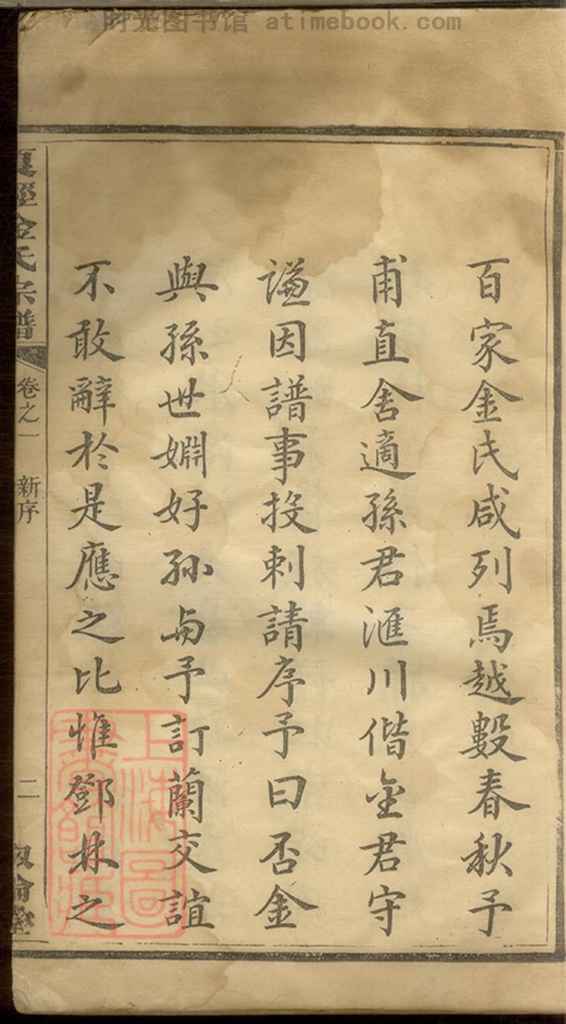 时光图书馆 atimebook.com
百家金氏咸列焉越數春秋予
甫直舍適孫君滙川偕金君守
謙因譜事投刺請序予曰否金
與孫世婣好孙与予訂蘭交誼
不敢辭於是應之比惟鄧林之
金氏宗譜
卷之一
新序
二
上海图